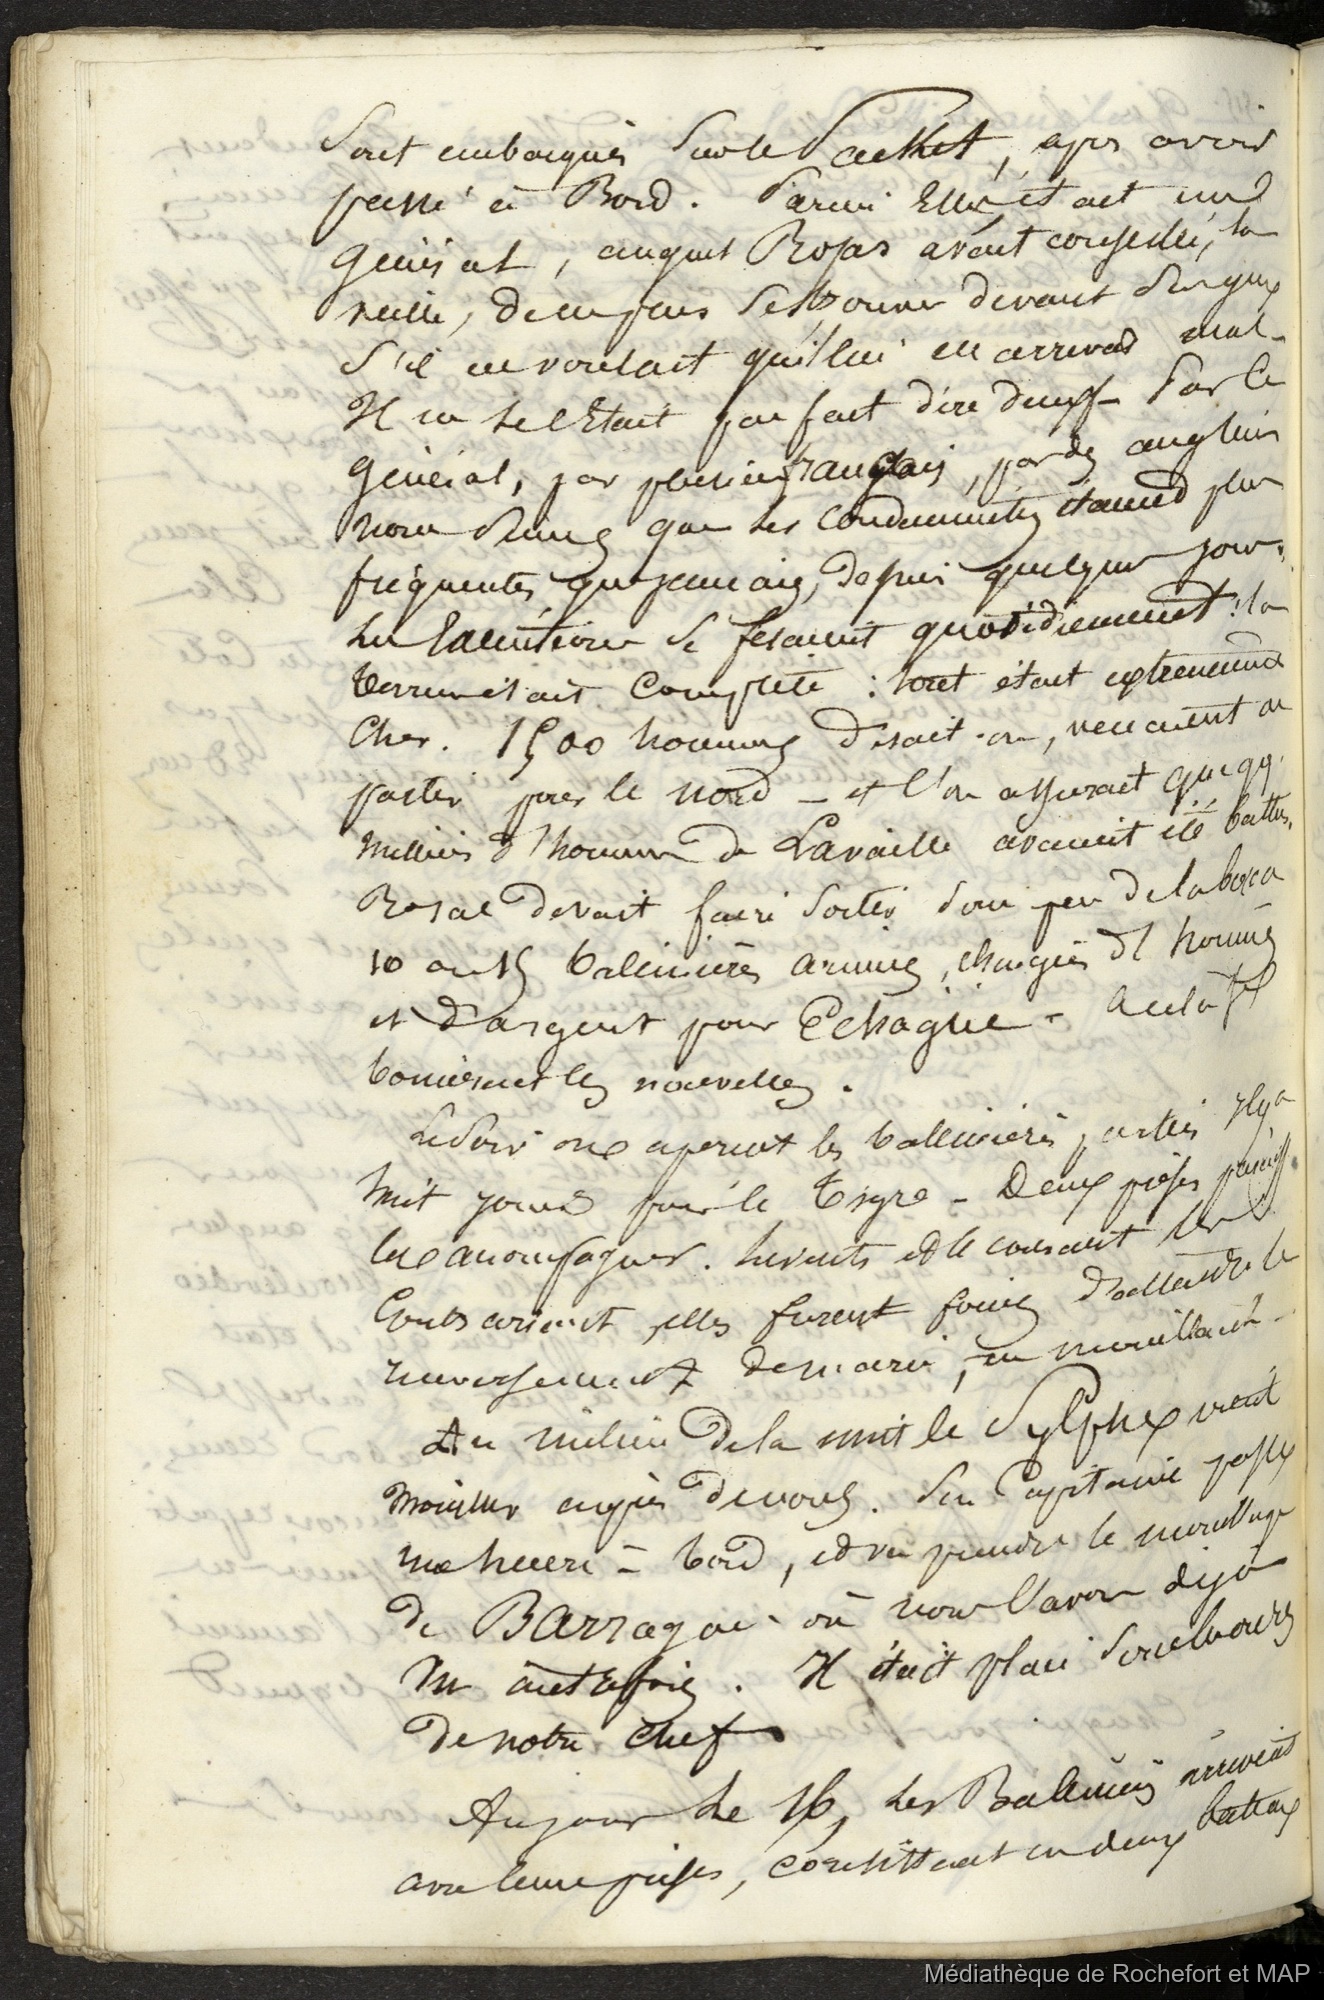 sont embarqués sur le Packet, après avoir
passé à Bord. Parmi Elles était un
général, auquel Rosas avait conseillé, la
veille, de ne pas se trouver devant ses yeux
s'il ne voulait qu'il lui en arrivas mal -
Il ne se l'Etait pas fait dire deux f - Par le
général, par plusieurs français, par des anglais
nous sumes que les condamnations étaient plus
fréquentes que jamais, depuis quelques jours.
les Exécutions se fesaient quotidiennement : la
terreur était Complète : tout était extremement
Cher. 1500 hommes disait-on, venaient de
partir pour le nord - et l'on assurait que qq.
milliers d'hommes de Lavalle avaient été battus.
Rosas devait faire sortir sous peu de la boca
10 ou 15 balinières armées, chargées d'hommes
et d'argent pour Echague - à cela se
bornèrent les nouvelles.
Le Soir on aperçut les ballinières parties il y a
huit jours pour le Tigre - Deux prises
les accompagner. Les vents et le courant les
contrariant, elles furent forcées d'attendre le
renversement de marée, en mouillant -
Au milieu de la nuit le Sylphe vient
mouiller auprès de nous. Son Capitaine passe
une heure à bord, et va prendre le mouillage
de Barragan où nous l'avons déjà
vu autrefois. Il était placé sous les ordres
de notre chef
Au jour le 16, les Balinières arrivent
avec leurs prises, consistant en deux bateaux
Médiathèque de Rochefort et MAP